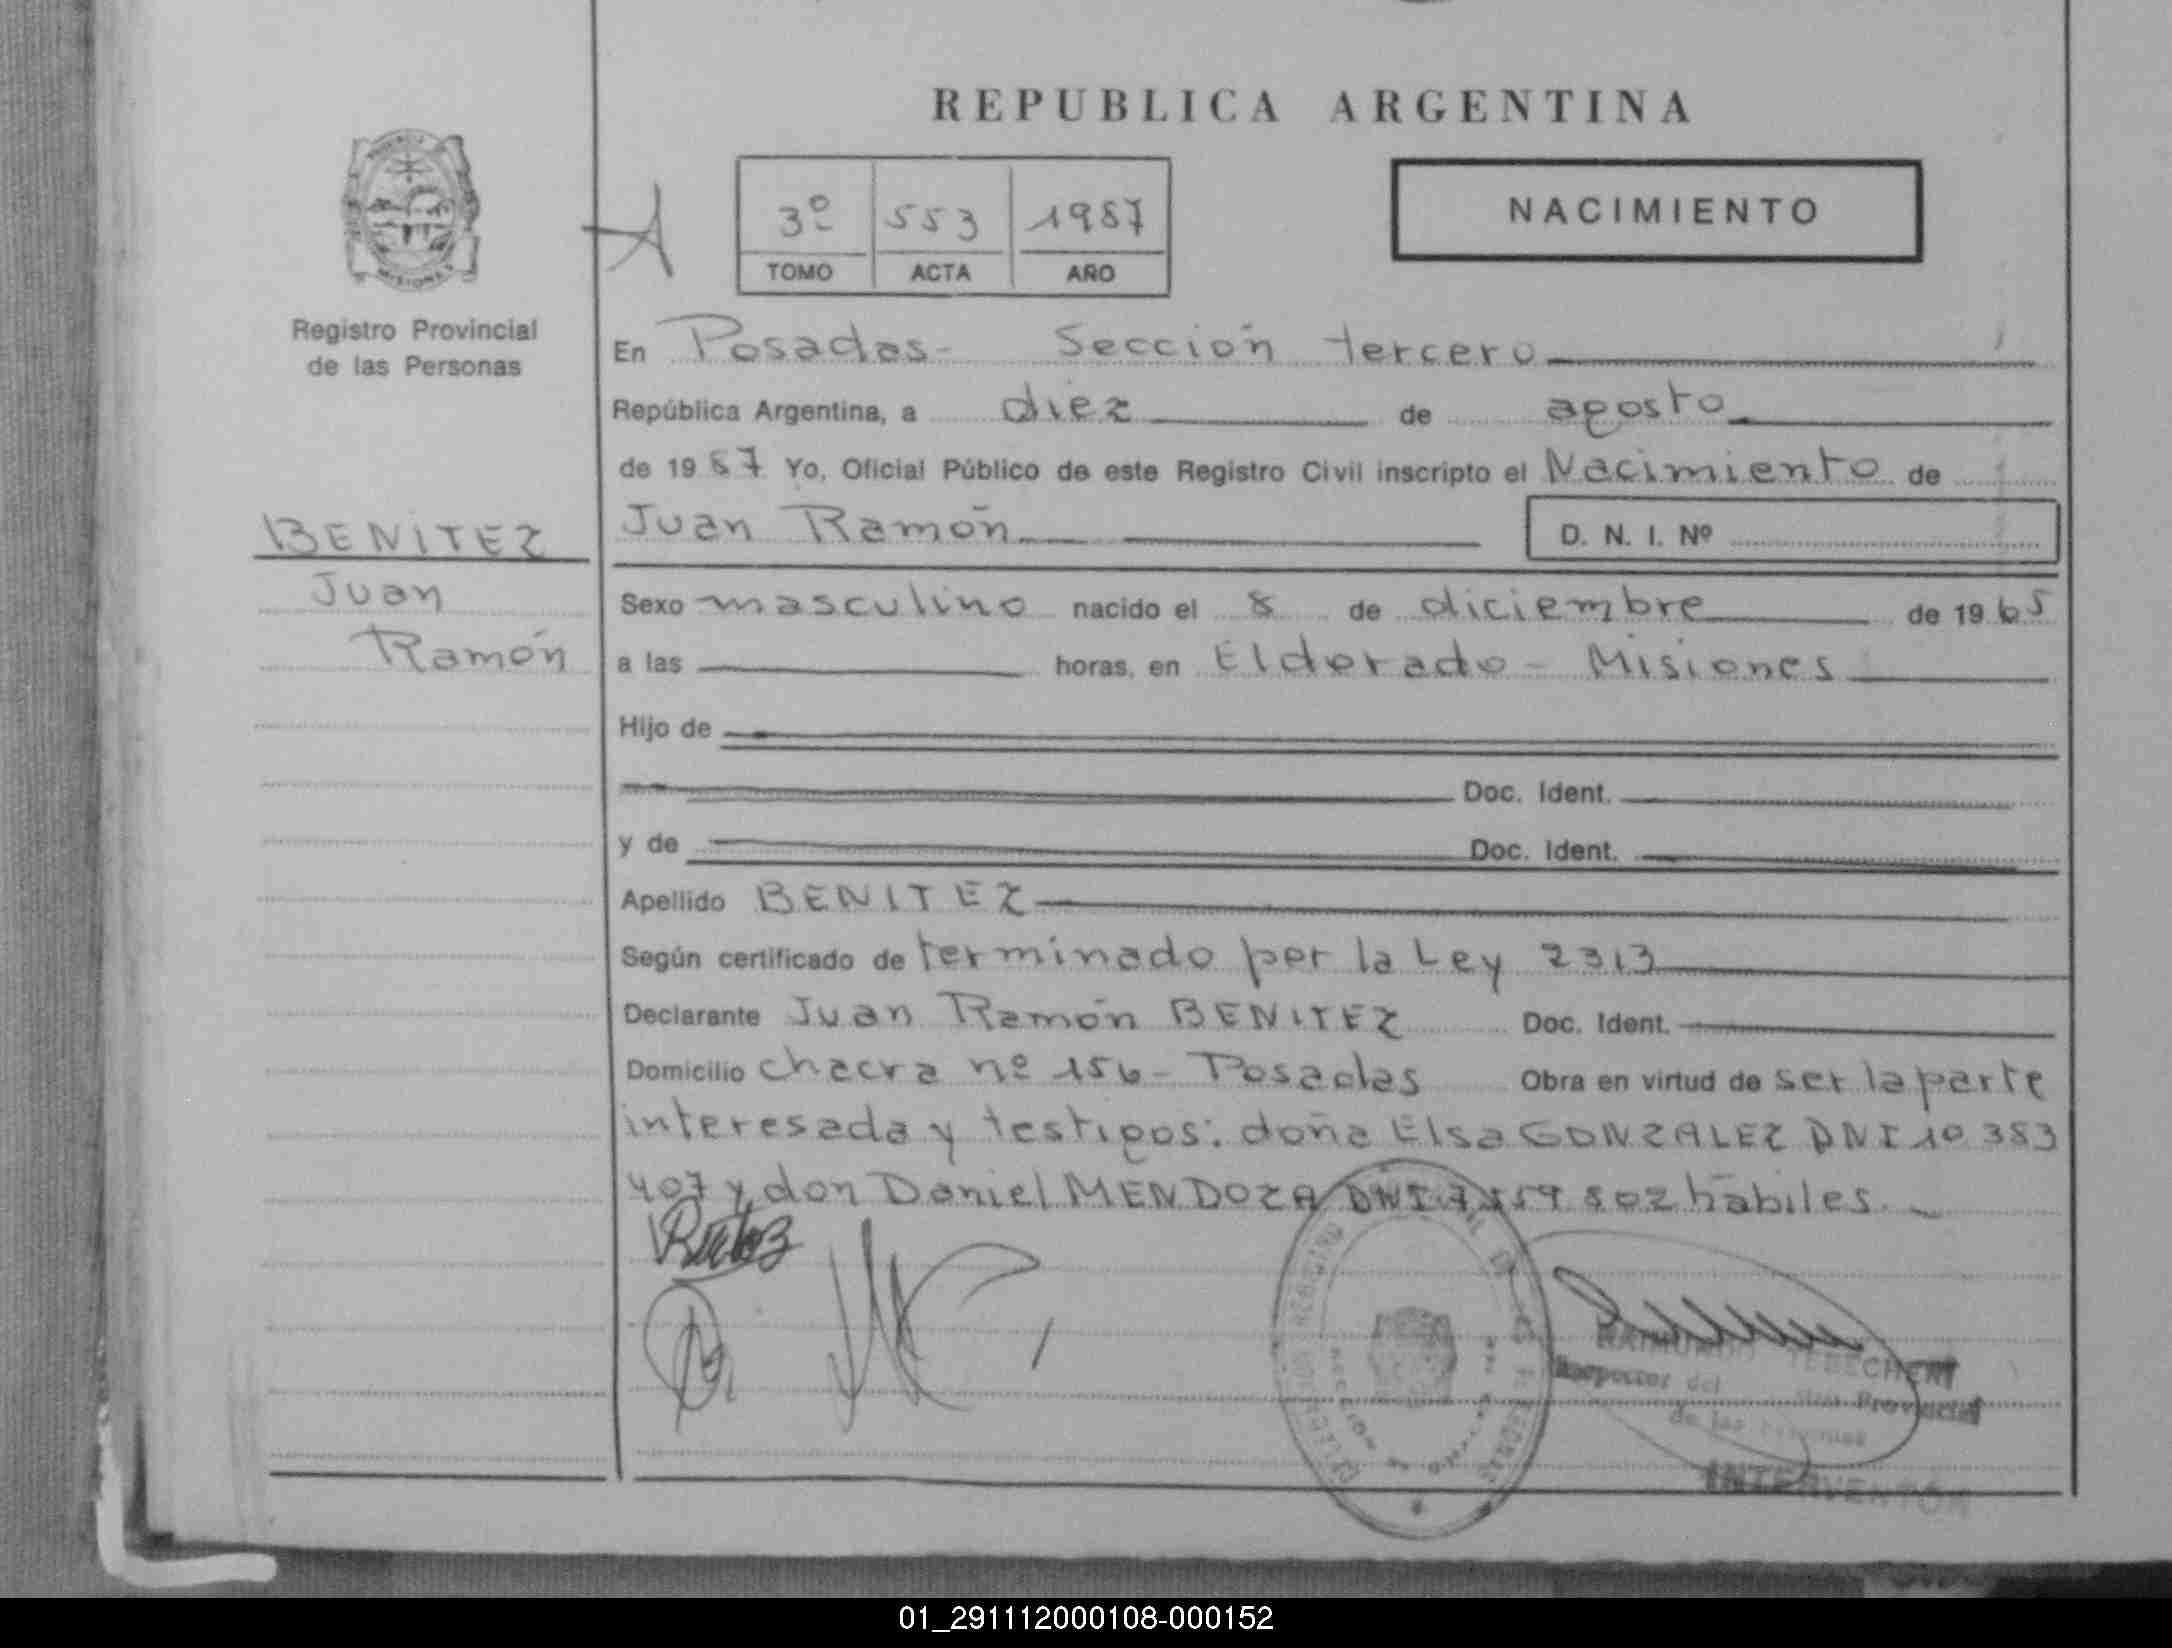 REPUBLICA ARGENTINA
PROVINCIA
MISIONES
Registro Provincial
de las Personas
A
3º 553 1987
TOMO ACTA AÑO
NACIMIENTO
En Posadas- Sección tercero
República Argentina, a diez de agosto
de 1987 Yo, Oficial Público de este Registro Civil inscripto el Nacimiento de
Juan Ramón D. N. I. Nº
BENITEZ
Juan
Ramón
Sexo masculino nacido el 8 de diciembre de 1965
a las horas, en Eldorado - Misiones
Hijo de
Doc. Ident.
y de Doc. Ident.
Apellido BENITEZ
Según certificado de terminado por la Ley 2313
Declarante Juan Ramón BENITEZ Doc. Ident.
Domicilio chacra nº 156- Posadas Obra en virtud de ser la parte
interesada y testigos: doña Elsa GONZALEZ DNI 10 383
407 y don Daniel MENDOZA DNI 802 hábiles.
RAIMUNDO
Inspector del Provincial
de las Personas
INTERVENTOR
01_291112000108-000152